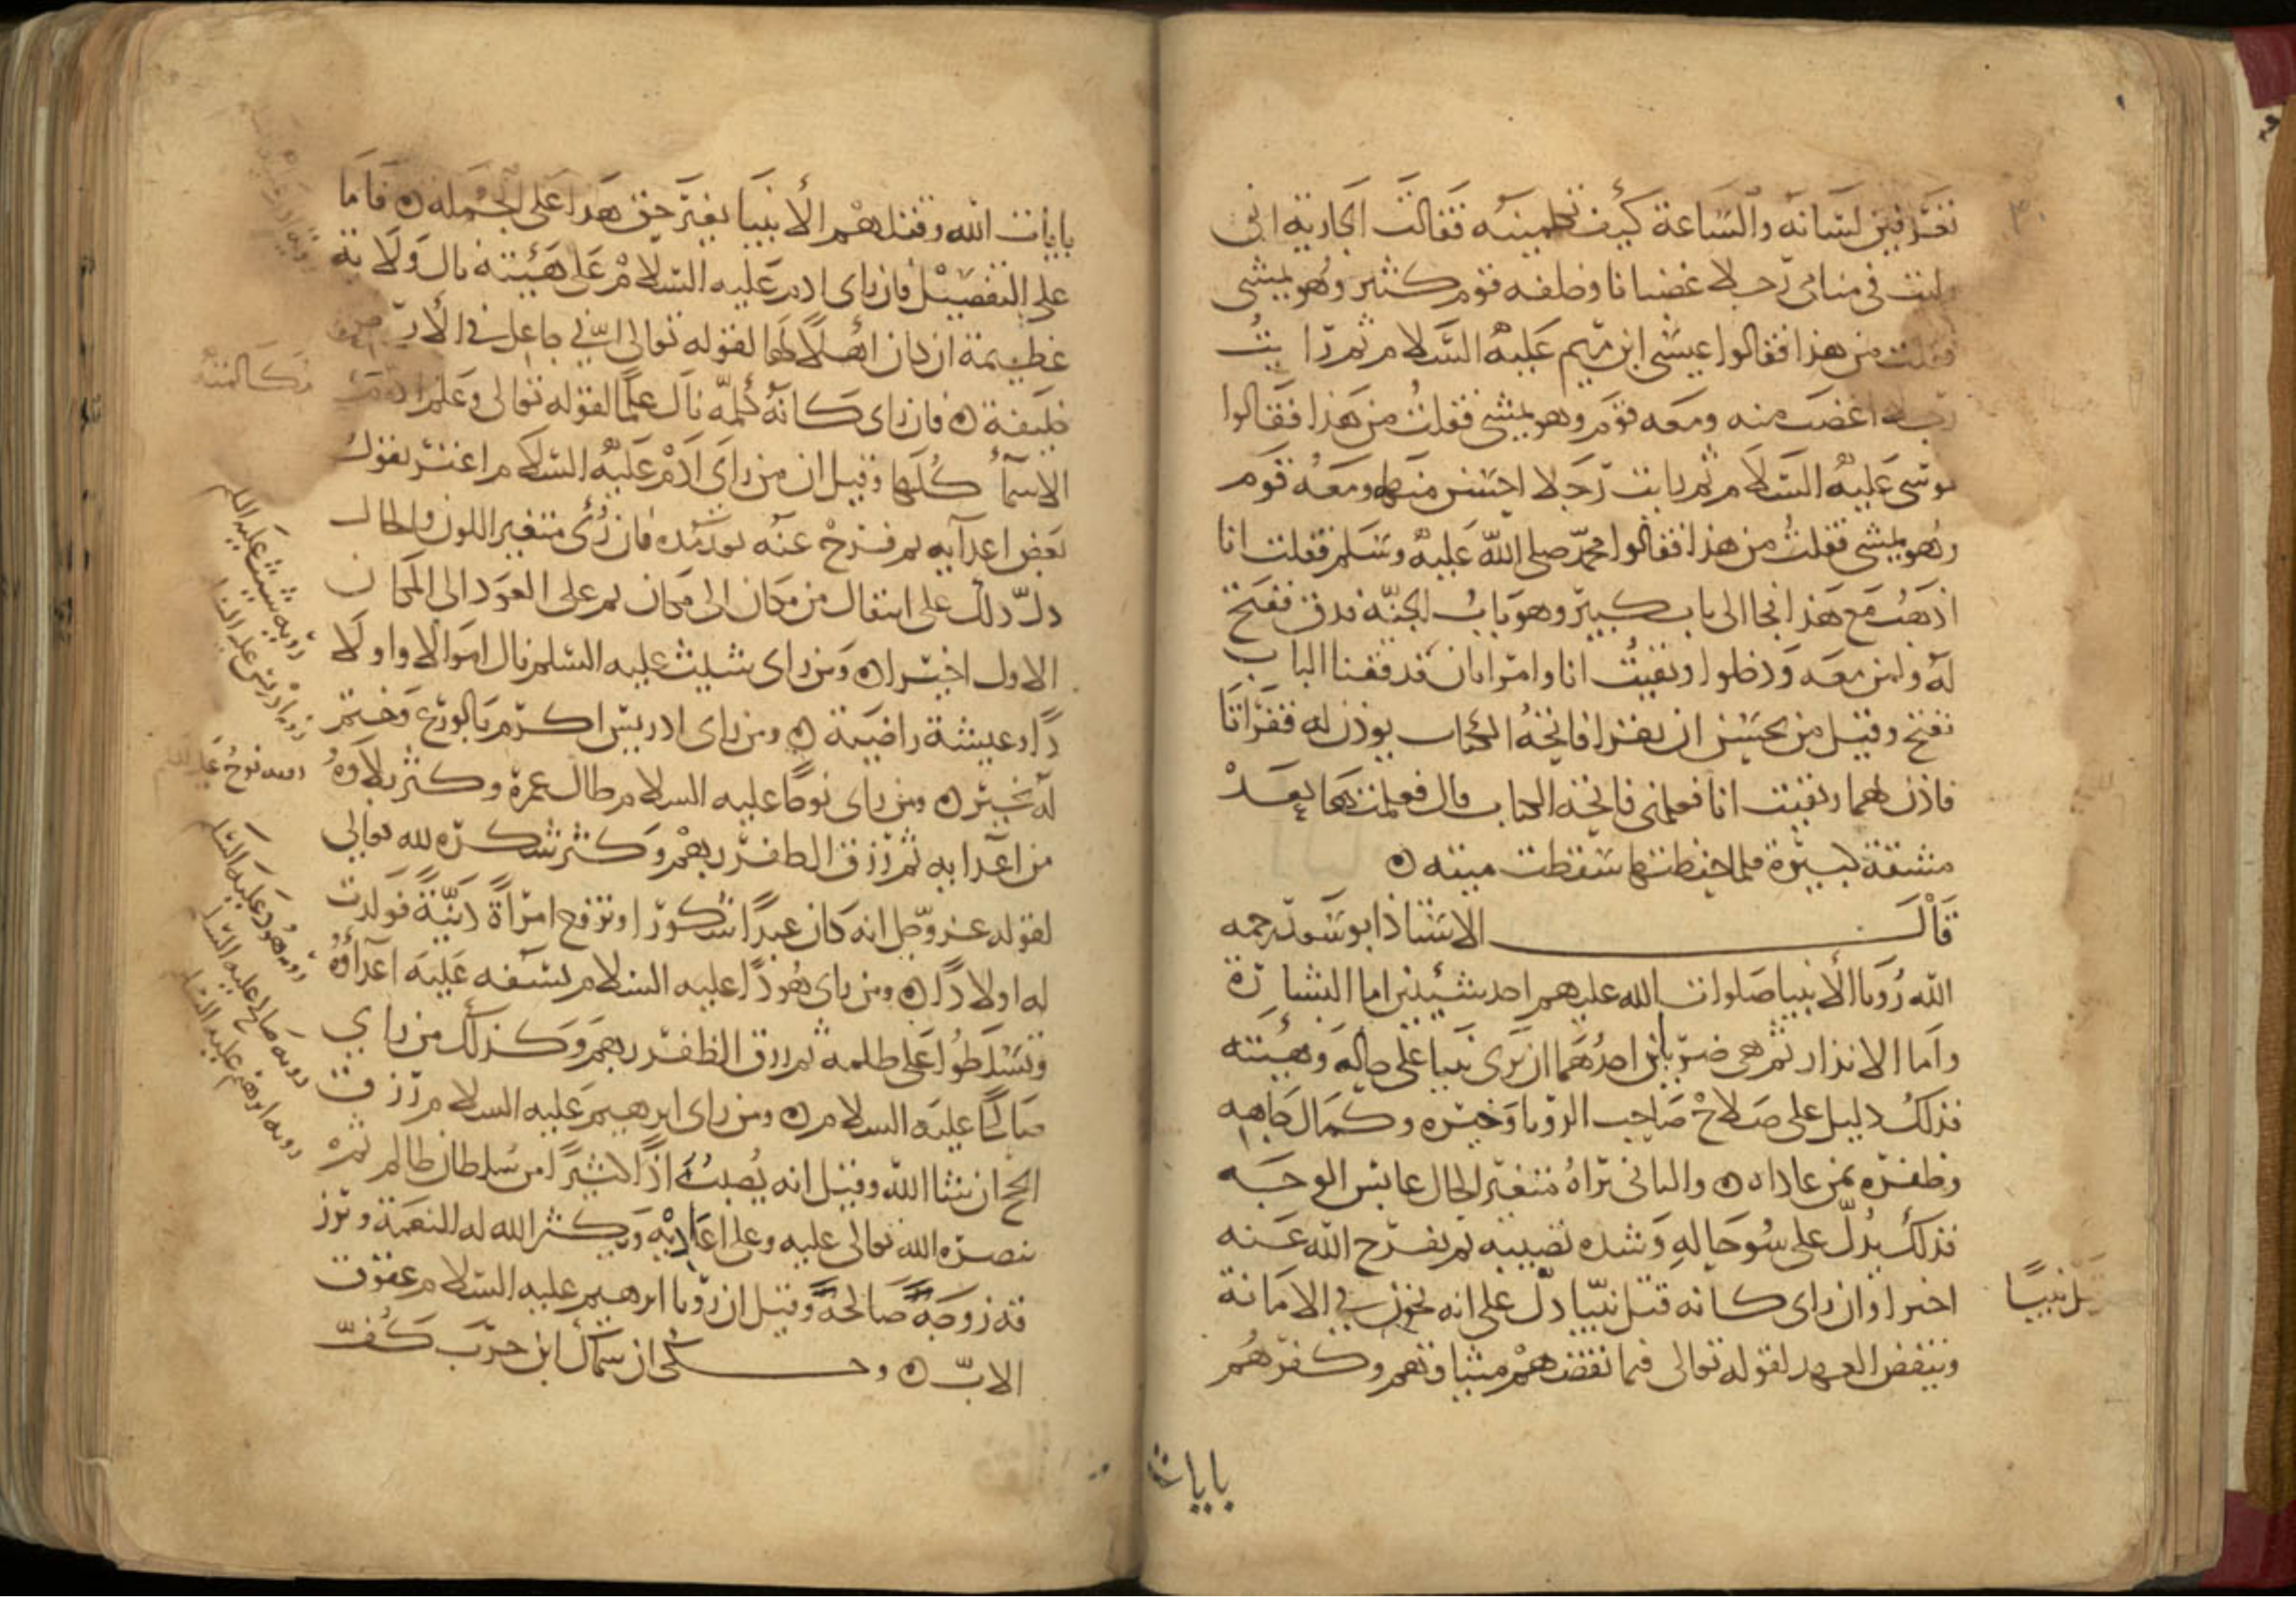 تعرفين لسانه والساعة كيف تعلمينه فقالت الجارية انى
رايت فى منامى رجلا غضبانا وخلفه قوم كثير وهو يمشى
فقلت من هذا فقالوا عيسى ابن مريم عليه السلام ثم رايت
رجلا اغضب منه ومعه قوم وهو يمشى فقلت من هذا فقالوا
موسى عليه السلام ثم رايت رجلا احسن منهما ومعه قوم
وهو يمشى فقلت من هذا فقالوا محمد صلى الله عليه وسلم فقلت انا
اذهب مع هذا فجا الى باب كبير وهو باب الجنة فدق ففتح
له ولمن معه ودخلوا وبقيت انا وامراتان فدققنا الباب
ففتح وقيل من يحسن ان يقرا فاتحة الكتاب يوذن له فقراتا
فاذن لهما وبقيت انا فعلمنى فاتحة الكتاب قال فعلمتها بعد
مشقة كبيرة فلما حفظتها سقطت ميتة
قال الاستاذ ابو سعد رحمه
الله رويا الأنبيا صلوات الله عليهم احد شيئين اما البشارة
واما الانذار ثم هى ضربان احدهما ان يرى نبيا على حاله وهيئته
فذلك دليل على صلاح صاحب الرويا وخيره وكمال جاهه
وظفره بمن عاداه والثانى يراه متغير الحال عابس الوجه
فذلك يدل على سو حاله وشدة تصيبه ثم يفرج الله عنه
اخيرا وان راى كانه قتل نبيا دل على انه يخون فى الامانة
وينقض العهد لقوله تعالى فبما نقضهم ميثاقهم وكفرهم
قتل نبيا
بايات
بايات الله وقتلهم الأنبيا بغير حق هذا على الجملة فاما
على التفصيل فان راى ادم عليه السلام على هيئته نال ولاية
عظيمة ان كان اهلا لها لقوله تعالى انى جاعل فى الأرض
خليفة فان راى كانه كلمه نال علما لقوله تعالى وعلم ادم
الاسمأ كلها وقيل ان من راى ادم عليه السلام اغتر بقول
بعض اعدآيه ثم فرج عنه بعد مدة فان رؤى متغير اللون والحال
دل ذلك على انتقال من مكان الى مكان ثم على العود الى المكان
الاول اخيرا ومن راى شيث عليه السلم نال اموالا واولا
دا وعيشة راضية ومن راى ادريس اكرم بالورع وختم
له بخير ومن راى نوحا عليه السلام طال عمره وكثر بلاوه
من اعدايه ثم رزق الظفر بهم وكثر شكره لله تعالى
لقوله عز وجل انه كان عبدا شكورا وتزوج امرأة دنية فولدت
له اولادا ومن راى هودا عليه السلام تسفه عليه اعدآؤه
وتسلطوا على ظلمه ثم رزق الظفر بهم وكذلك من راى
صالحا عليه السلام ومن راى ابرهيم عليه السلام رزق
الحج ان شا الله وقيل انه يصيبه اذا كثيرا من سلطان ظالم ثم
ينصره الله تعالى عليه وعلى اعاديه ويكثر الله له النعمة ويرز
قه زوجة صالحة وقيل ان رويا ابرهيم عليه السلام عقوق
الاب وحكى ان سماك ابن حرب كف
روية شيث عليه السلم
روية ادريس عليه السلم
روية نوح عليه السلم
روية هود عليه السلم
روية صالح عليه السلم
روية ابرهيم عليه السلم